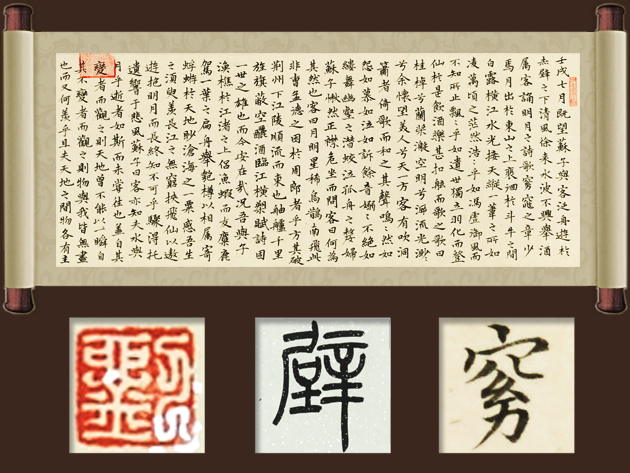 壬戌七月既望蘇子與客泛舟遊於
赤壁之下清風徐來水波不興舉酒
属客誦明月之詩歌窈窕之章少
焉月出於東山之上裴洄於斗牛之間
白露橫江水光接天縱一葦之所如
凌萬頃之茫然浩乎如馮虛御風而
不知所止飄飄乎如遺世獨立羽化而登
仙於是飲酒樂甚扣舷而歌之歌曰
桂棹兮蘭槳擊空明兮溯流光渺渺
兮余懷望美人兮天一方客有吹洞
簫者倚歌而和之其聲嗚嗚然如
怨如慕如泣如訴餘音嫋嫋不絕如
縷舞幽壑之潛蛟泣孤舟之嫠婦
蘇子愀然正襟危坐而問客曰何為
其然也客曰月明星稀烏鵲南飛此
非曹孟德之困於周郎者乎方其破
荊州下江陵順流而東也舳艫千里
旌旗蔽空釃酒臨江橫槊賦詩固
一世之雄也而今安在哉況吾與子
漁樵於江渚之上侶魚蝦而友麋鹿
駕一葉之扁舟舉匏樽以相属寄
蜉蝣於天地渺滄海之一粟哀吾生
之須臾羨長江之無窮挾飛仙以遨
遊抱明月而長終知不可乎驟得托
遺響於悲風蘇子曰客亦知夫水與
月乎逝者如斯而未嘗往也盖自其
變者而觀之則天地曾不能以一瞬自
其不變者而觀之則物與我皆無盡
也而又何羨乎且夫天地之間物各有主
壁
穷